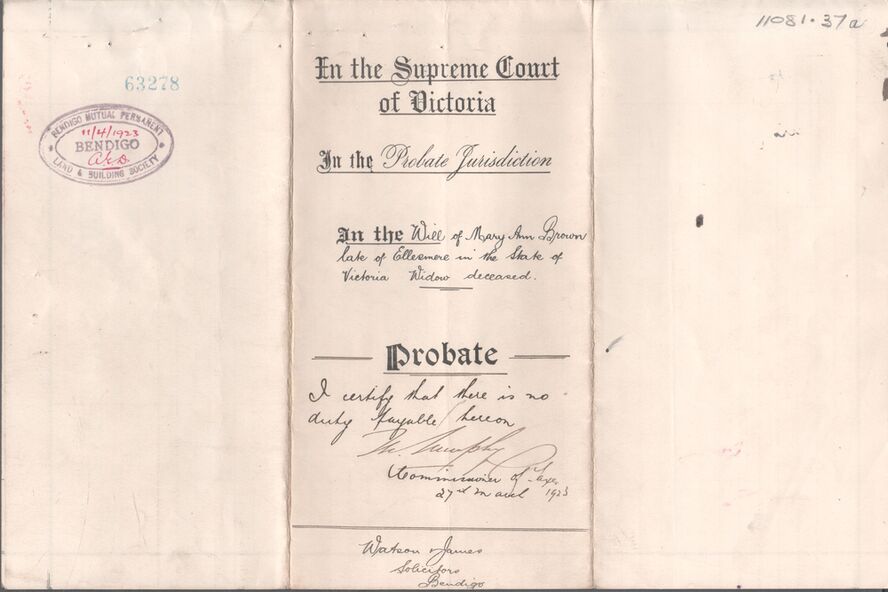 11081.37a
63278
BENDIGO MUTUAL PERMANENT
11/4/1923
BENDIGO
LAND & BUILDING SOCIETY
In the Supreme Court
of Victoria
In the Probate Jurisdiction
In the Will of Mary Ann Brown
late of Ellesmere in the State of
Victoria Widow deceased.
Probate
I certify that there is no
duty payable hereon
Murphy
Commissioner of Taxes
27 March 1923
Watson & James
Solicitors
Bendigo